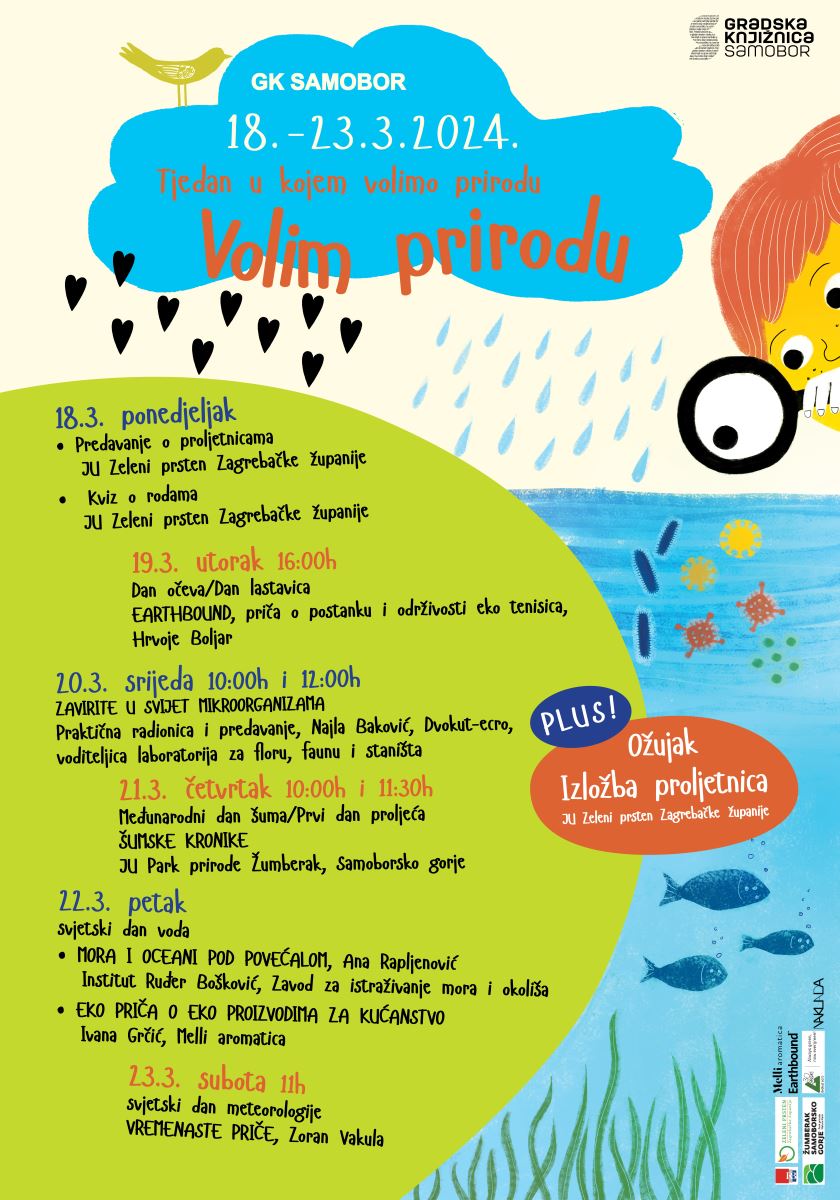 GRADSKA
KNJIŽNICA
SAMOBOR
GK SAMOBOR
18.-23.3.2024.
Tjedan u kojem volimo prirodu
Volim prirodu
18.3. ponedjeljak
• Predavanje o proljetnicama
JU Zeleni prsten Zagrebačke županije
• Kviz o rodama
JU Zeleni prsten Zagrebačke županije
19.3. utorak 16:00h
Dan očeva/Dan lastavica
EARTHBOUND, priča o postanku i održivosti eko tenisica,
Hrvoje Boljar
20.3. srijeda 10:00h i 12:00h
ZAVIRITE U SVIJET MIKROORGANIZAMA
Praktična radionica i predavanje, Najla Baković, Dvokut-ecro,
voditeljica laboratorija za floru, faunu i staništa
21.3. četvrtak 10:00h i 11:30h
Međunarodni dan šuma/Prvi dan proljeća
ŠUMSKE KRONIKE
JU Park prirode Žumberak, Samoborsko gorje
22.3. petak
svjetski dan voda
• MORA I OCEANI POD POVEĆALOM, Ana Rapljenović
Institut Ruđer Bošković, Zavod za istraživanje mora i okoliša
• EKO PRIČA O EKO PROIZVODIMA ZA KUĆANSTVO
Ivana Grčić, Melli aromatica
23.3. subota 11h
svjetski dan meteorologije
VREMENASTE PRIČE, Zoran Vakula
PLUS!
Ožujak
Izložba proljetnica
JU Zeleni prsten Zagrebačke županije
VAKULNDA
Melli aromatica
Earthbound
ZELENI PRSTEN
ŽUMBERAK
SAMOBORSKO
GORJE